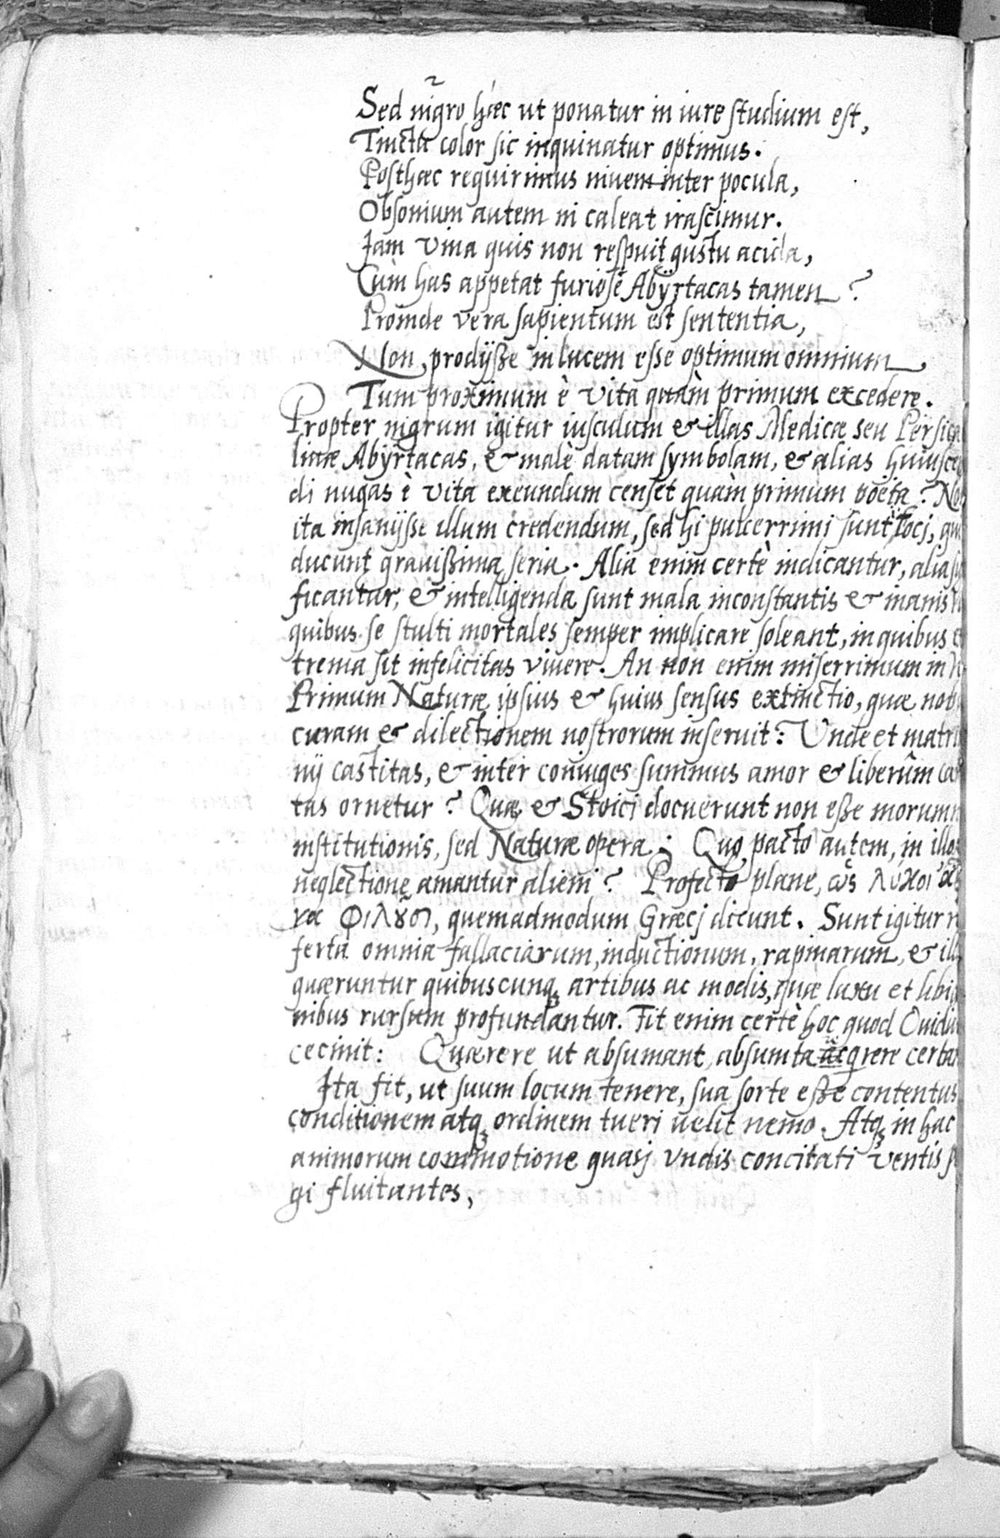 Sed nigro hæc ut ponatur in iure studium est,
Tincta color sic inquinatur optimus.
Posthæc requirimus nivem inter pocula,
Obsonium autem ni caleat irascimur.
Iam vina quis non respuit gustu acida,
Cùm has appetat furiosè Abÿrtacas tamen?
Proinde vera sapientum est sententia,
Non prodijße in lucem eße optimum omnium
Tum proximum è vita quàm primum excedere.
Propter nigrum igitur iusculum & illas Medicæ seu
linæ Abÿrtacas, & malè datam symbolam, & alias
di nugas è vita exeundum censet quàm primum poëta?
ita insanijsse illum credendum, sed hi pulcerrimi sunt iocj,
ducunt gravißima seria. Alia enim certè indicantur, alia
ficantur, & intelligenda sunt mala inconstantis & inanis
quibus se stulti mortales semper implicare soleant, in quibus
trema sit infelicitas vivere. An non enim miserrimum in
Primum Naturæ ipsius & huius sensus extinctio, quæ
curam & dilectionem nostrorum inseruit: Unde et
nij castitas, & inter coniuges summus amor & liberûm
tas ornetur? Quæ & Stoici docuerunt non eße
institutionis, sed Naturæ opera. Quo pacto autem, in
neglectione amantur alieni? Profectò plane, ὡς λύκοι
να φιλοῦσι, quemadmodum Græcj dicunt. Sunt igitur
ferta omnia fallaciarum, inductionum, rapinarum, &
quæruntur quibuscunq artibus ac modis, quæ luxu et
nibus rursum profundantur. Fit enim certè hoc quod
cecinit: Quærere ut absumant, absumta
Ita fit, ut suum locum tenere, sua sorte eße contentus
conditionem atq ordinem tueri velit nemo. Atq in hac
animorum commotione quasj vndis concitati ventis
gi fluitantes,